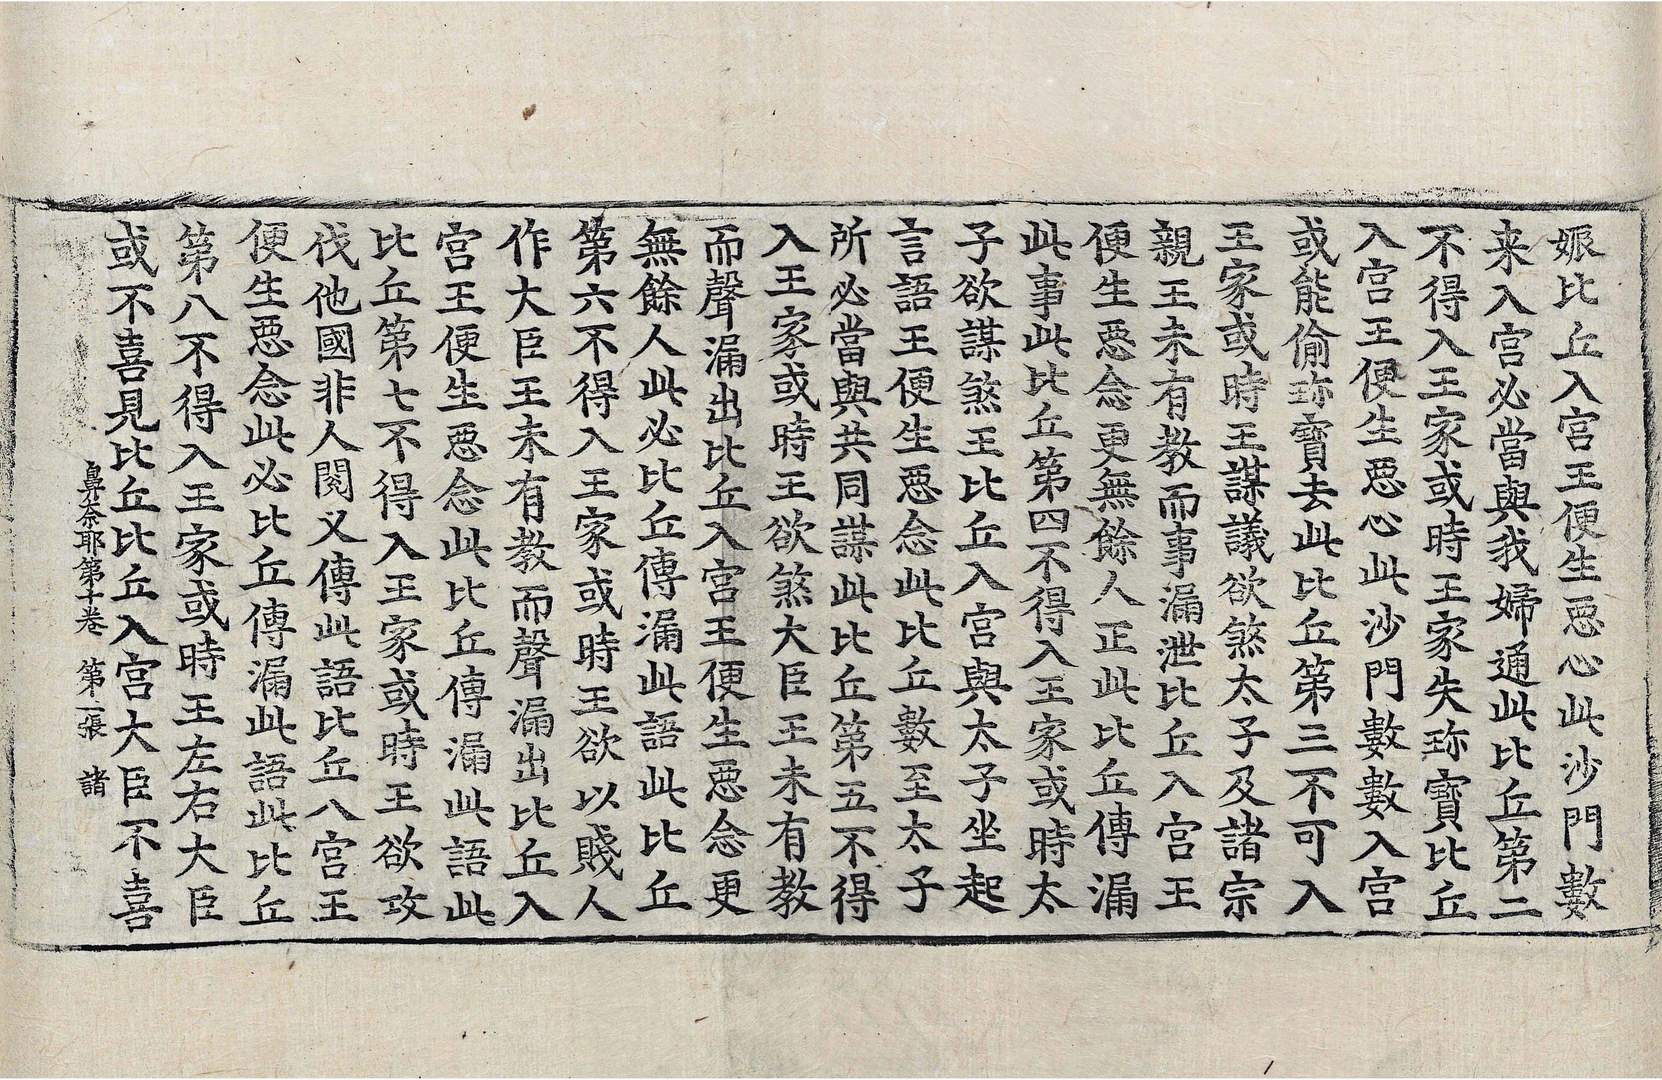 娠比丘入宫王便生惡心此沙門數
来入宫必當與我婦通此比丘第二
不得入王家或時王家失珎寶比丘
入宫王便生惡心此沙門數數入宫
或能偷珎寶去此比丘第三不可入
王家或時王謀議欲煞太子及諸宗
親王未有教而事漏泄比丘入宫王
便生惡念更無餘人正此比丘傳漏
此事此比丘第四不得入王家或時太
子欲謀煞王比丘入宫與太子坐起
言語王便生惡念此比丘數至太子
所必當與共同謀此比丘第五不得
入王家或時王欲煞大臣王未有教
而聲漏出比丘入宫王便生惡念更
無餘人此必比丘傳漏此語此比丘
第六不得入王家或時王欲以賤人
作大臣王未有教而聲漏出比丘入
宫王便生惡念此比丘傳漏此語此
比丘第七不得入王家或時王欲攻
伐他國非人閱叉傳此語比丘入宫王
便生惡念此必比丘傳漏此語此比丘
第八不得入王家或時王左右大臣
或不喜見比丘比丘入宫大臣不喜
鼻奈耶第十卷　第二張　諸